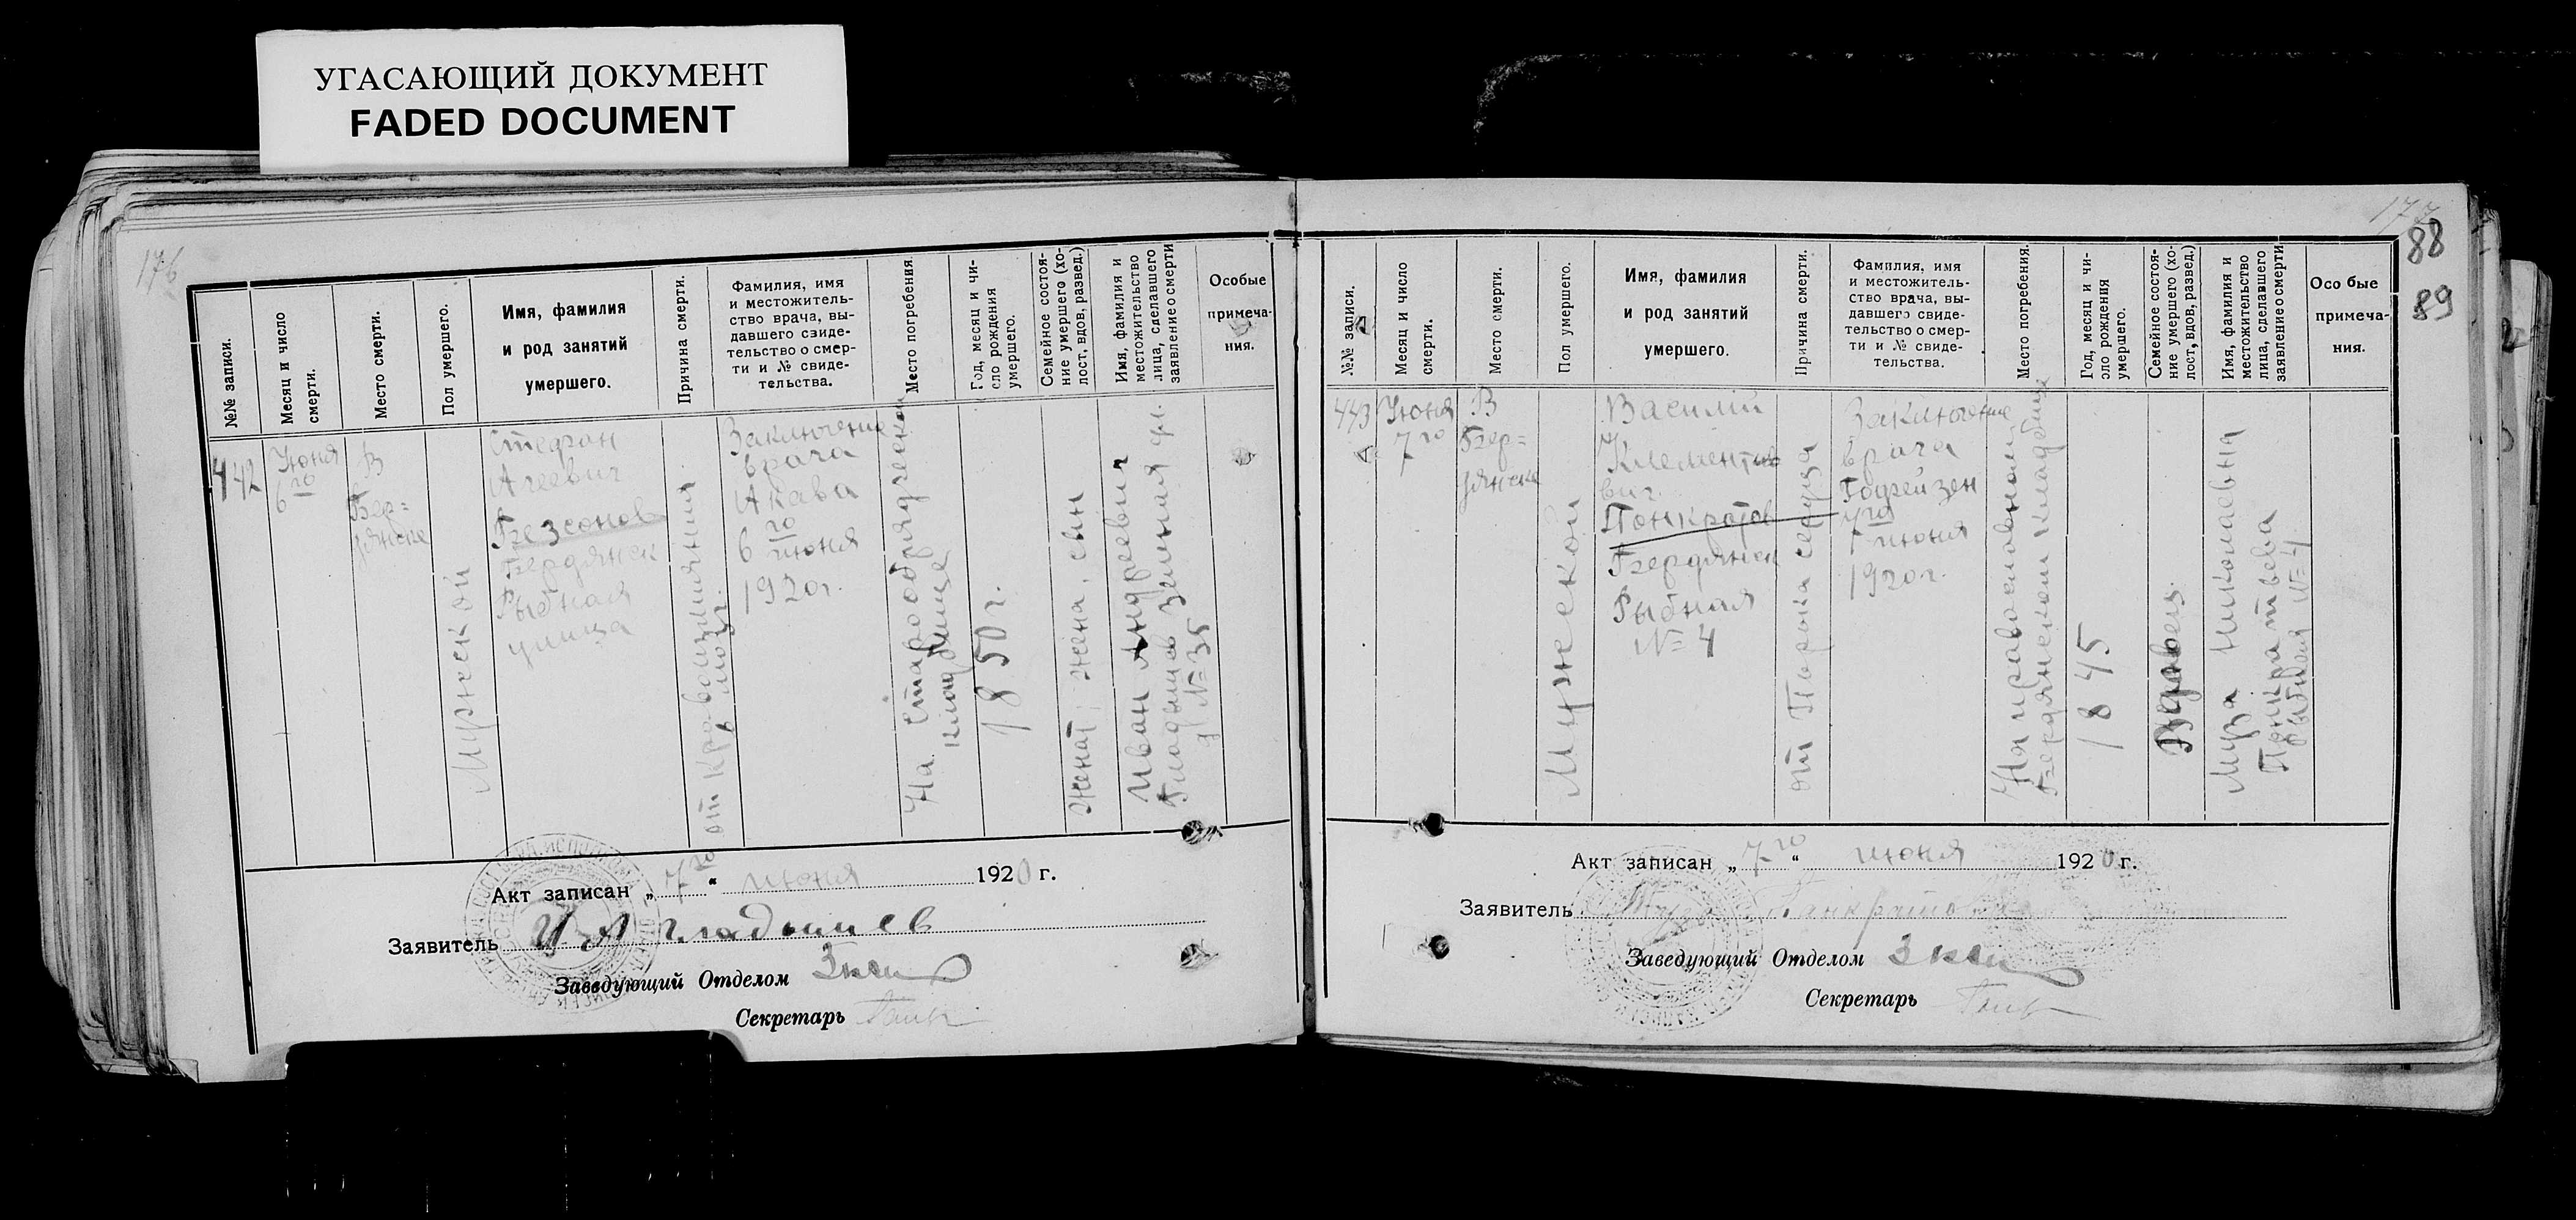 УГАСАЮЩИЙ ДОКУМЕНТ
FADED DOCUMENT
176
№№ записи.
Месяц и число
смерти.
Место смерти.
Пол умершего.
Имя, фамилия
и род занятий
умершего.
Причина смерти.
Фамилия, имя
и местожитель-
ство врача, вы-
давшего свиде-
тельство о смер-
ти и № свиде-
тельства.
Место погребения.
Год, месяц и чи-
сло рождения
умершего.
Семейное состоя-
ние умершего (хо-
лост, вдов, развед.)
Имя, фамилия и
местожительство
лица, сделавшего
заявление о смерти
Особые
примеча-
ния.
442
Июня
6го
В
Бер=
дянске
Мужской
Стефан
Агеевич
Бердянск
Рыбная
улица
от кровоизлияния
в мозг.
Заключение
врача
6го июня
1920 г.
На старообрядческом
кладбище
1850 г.
Женат; жена, сын
Иван Андреевич
Гладышев
д № 35
Акт записан „7го“ июня 1920 г.
Заявитель И А Гладышев
Заведующий Отделом
Секретарь
177
88
89
№№ записи.
Месяц и число
смерти.
Место смерти.
Пол умершего.
Имя, фамилия
и род занятий
умершего.
Причина смерти.
Фамилия, имя
и местожитель-
ство врача, вы-
давшего свиде-
тельство о смер-
ти и № свиде-
тельства.
Место погребения.
Год, месяц и чи-
сло рождения
умершего.
Семейное состоя-
ние умершего (хо-
лост, вдов, развед.)
Имя, фамилия и
местожительство
лица, сделавшего
заявление о смерти
Особые
примеча-
ния.
443
Июня
7го
В
Бер=
дянске
Мужской
Василий
Клементие
вич
Понкратов
Бердянск
Рыбная
№ 4
от Порока сердца
Заключение
врача
7го июня
1920 г.
На православном
Бердянском кладбище
1845
Вдовец.
Муза Николаевна
Рыбная № 4
Акт записан „7го“ июня 1920 г.
Заявитель Муза Панкратова
Заведующий Отделом
Секретарь